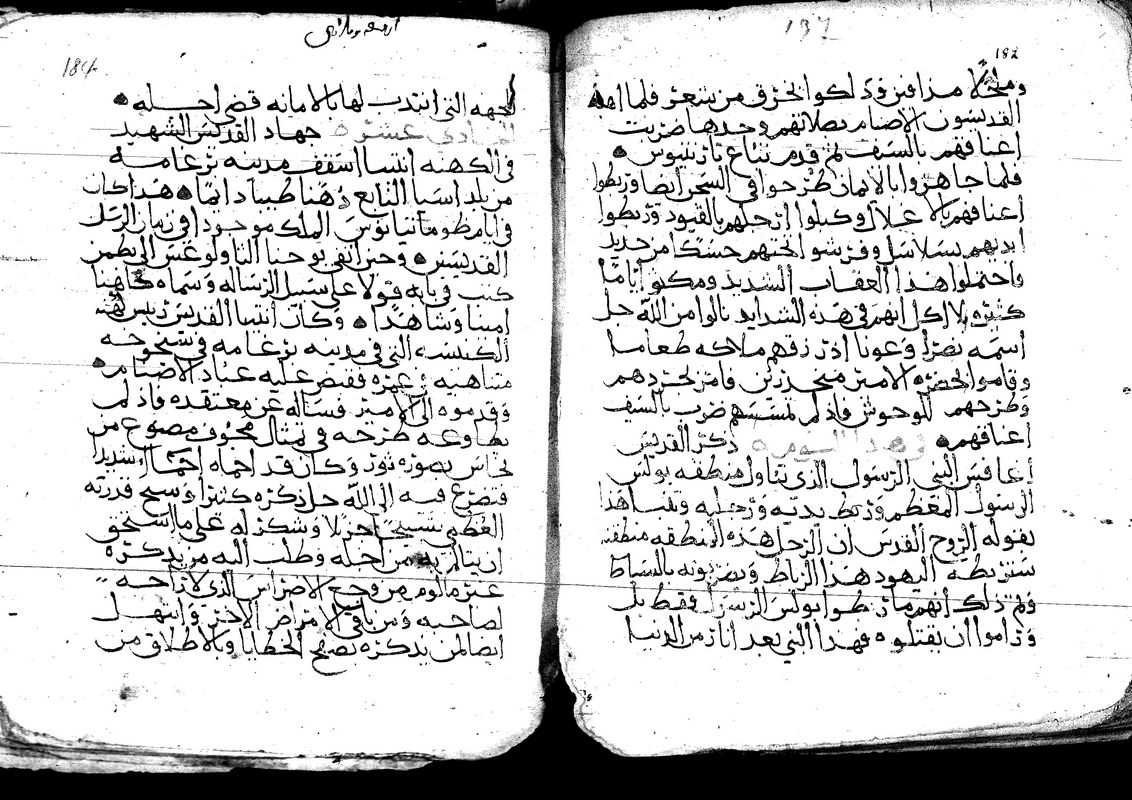 137
182
ومخلا مذا فين وذلكوا الخرق من شعر فلما اهدا
القديسون الاصنام بصلاتهم وحدها ضربت
اعناقهم بالسيف ثم قدم تتاع تارتيبوس
فلما جاهروا بالايمان طرحوا في السجن ايضا وربطوا
اعناقهم بالاغلال وكبلوا ارجلهم بالقيود وربطوا
ايديهم بسلاسل وفرشوا تحتهم حسكا من حديد
واحتملوا هذا العقاب الشديد ومكثوا اياما
كثيره بلا اكل انهم في هذه الشدايد نالوا من الله جل
اسمه نصرا وعونا اذ رزقهم ملاكه طعاما
وقاموا لحضره الامير متجددين فامر بجردهم
وطرحهم للوحوش فاذ لم تمسسهم ضرب بالسيف
اعناقهم وفي هذا اليوم ذكر القديس
اغافس النبي الرسول الذي تناول منطقه بولس
الرسول المعظم وربط يديه ورجليه وتنبا هذا
بقوله الروح القدس ان الرجل هذه المنطقه منطقته
ستربطه اليهود هذا الرباط ويضربونه بالسياط
وتم ذلك انهم ما ربطوا بولس الرسول فقط بل
وراموا ان يقتلوه فهذا النبي بعد انار من الدنيا
184
الجهه التي انتدب لها بالامانه قضى اجله
الحادي عشره جهاد القديس الشهيد
في الكهنه انتيبا اسقف مدينه برغامه
من بلد اسيا التابع رهنا طيبا دايما هذا كان
في ايام طومتانيانوس الملك موجودا في زمان الرسل
القديسين وحين انفى يوحنا الثاولوغس الى بطمن
كتب في بابه قولا على سبيل الرساله وسماه كاهنا
امينا وشاهدا وكان انتيبا القديس رييس كهنه
الكنيسه التي في مدينه برغامه في شيخوخه
متناهيه من عمره فقبض عليه عباد الاصنام
وقدموه الى الامير فساله عن معتقده واذ لم
يطاوعه طرحه في تمثال مجوف مصنوع من
نحاس بصوره ثور وكان قد احماه احما شديدا
فتضرع فيه الى الله جل ذكره كثيرا وسبح قدرته
العظمى تسبيحا جزيلا وشكر له على ما استحق
ان يتالم به من اجله وطلب اليه من يذكره
غير مالوم من وجع الاضراس الذي لا راحه
لصاحبه ومن باقي الامراض الاخر وابتهل
ايضا لمن يذكره بصفح الخطايا وبالاطلاق من